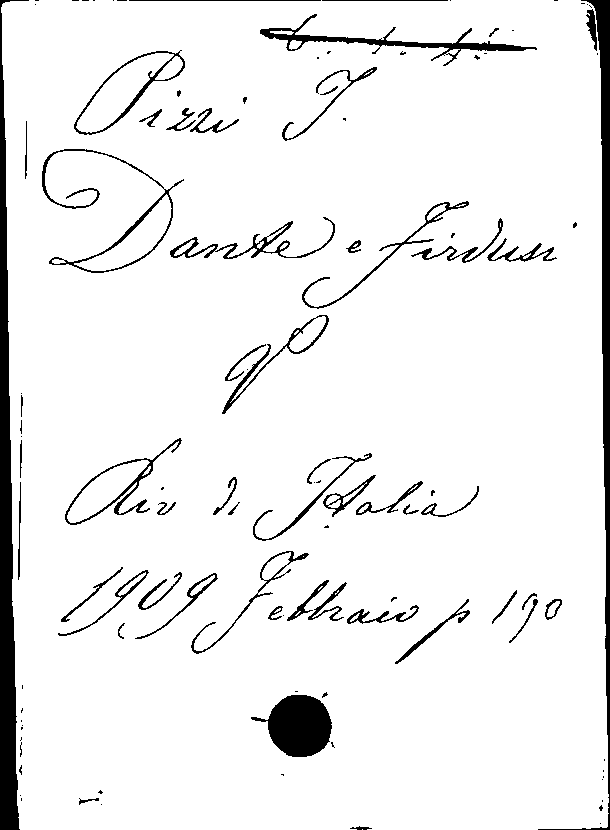 Pizzi I.
Dante e Firdusi
Riv di Italia
1909 Febbraio p 190